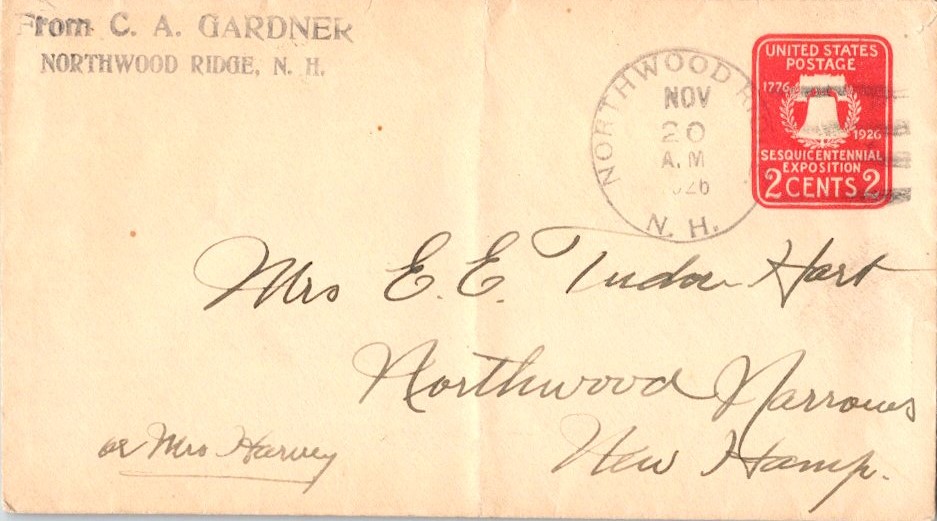 From C. A. GARDNER
NORTHWOOD RIDGE, N. H.
NORTHWOOD RI
NOV
20
A.M
926
N. H.
UNITED STATES
POSTAGE
1776
1926
SESQUICENTENNIAL
EXPOSITION
2 CENTS 2
Mrs E. E. Tudor Hart
Northwood Narrows
New Hamp.
or Mrs Harvey